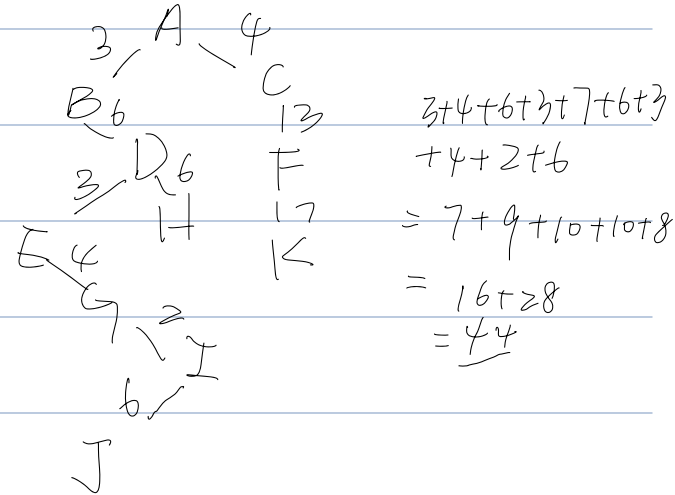 3 A 4
B 6 C
13
D 6 F
3 H 17
E 4 K
G 2
I
6
J
3+4+6+3+7+6+3
+4+2+6
= 7+9+10+10+8
= 16+28
= 44